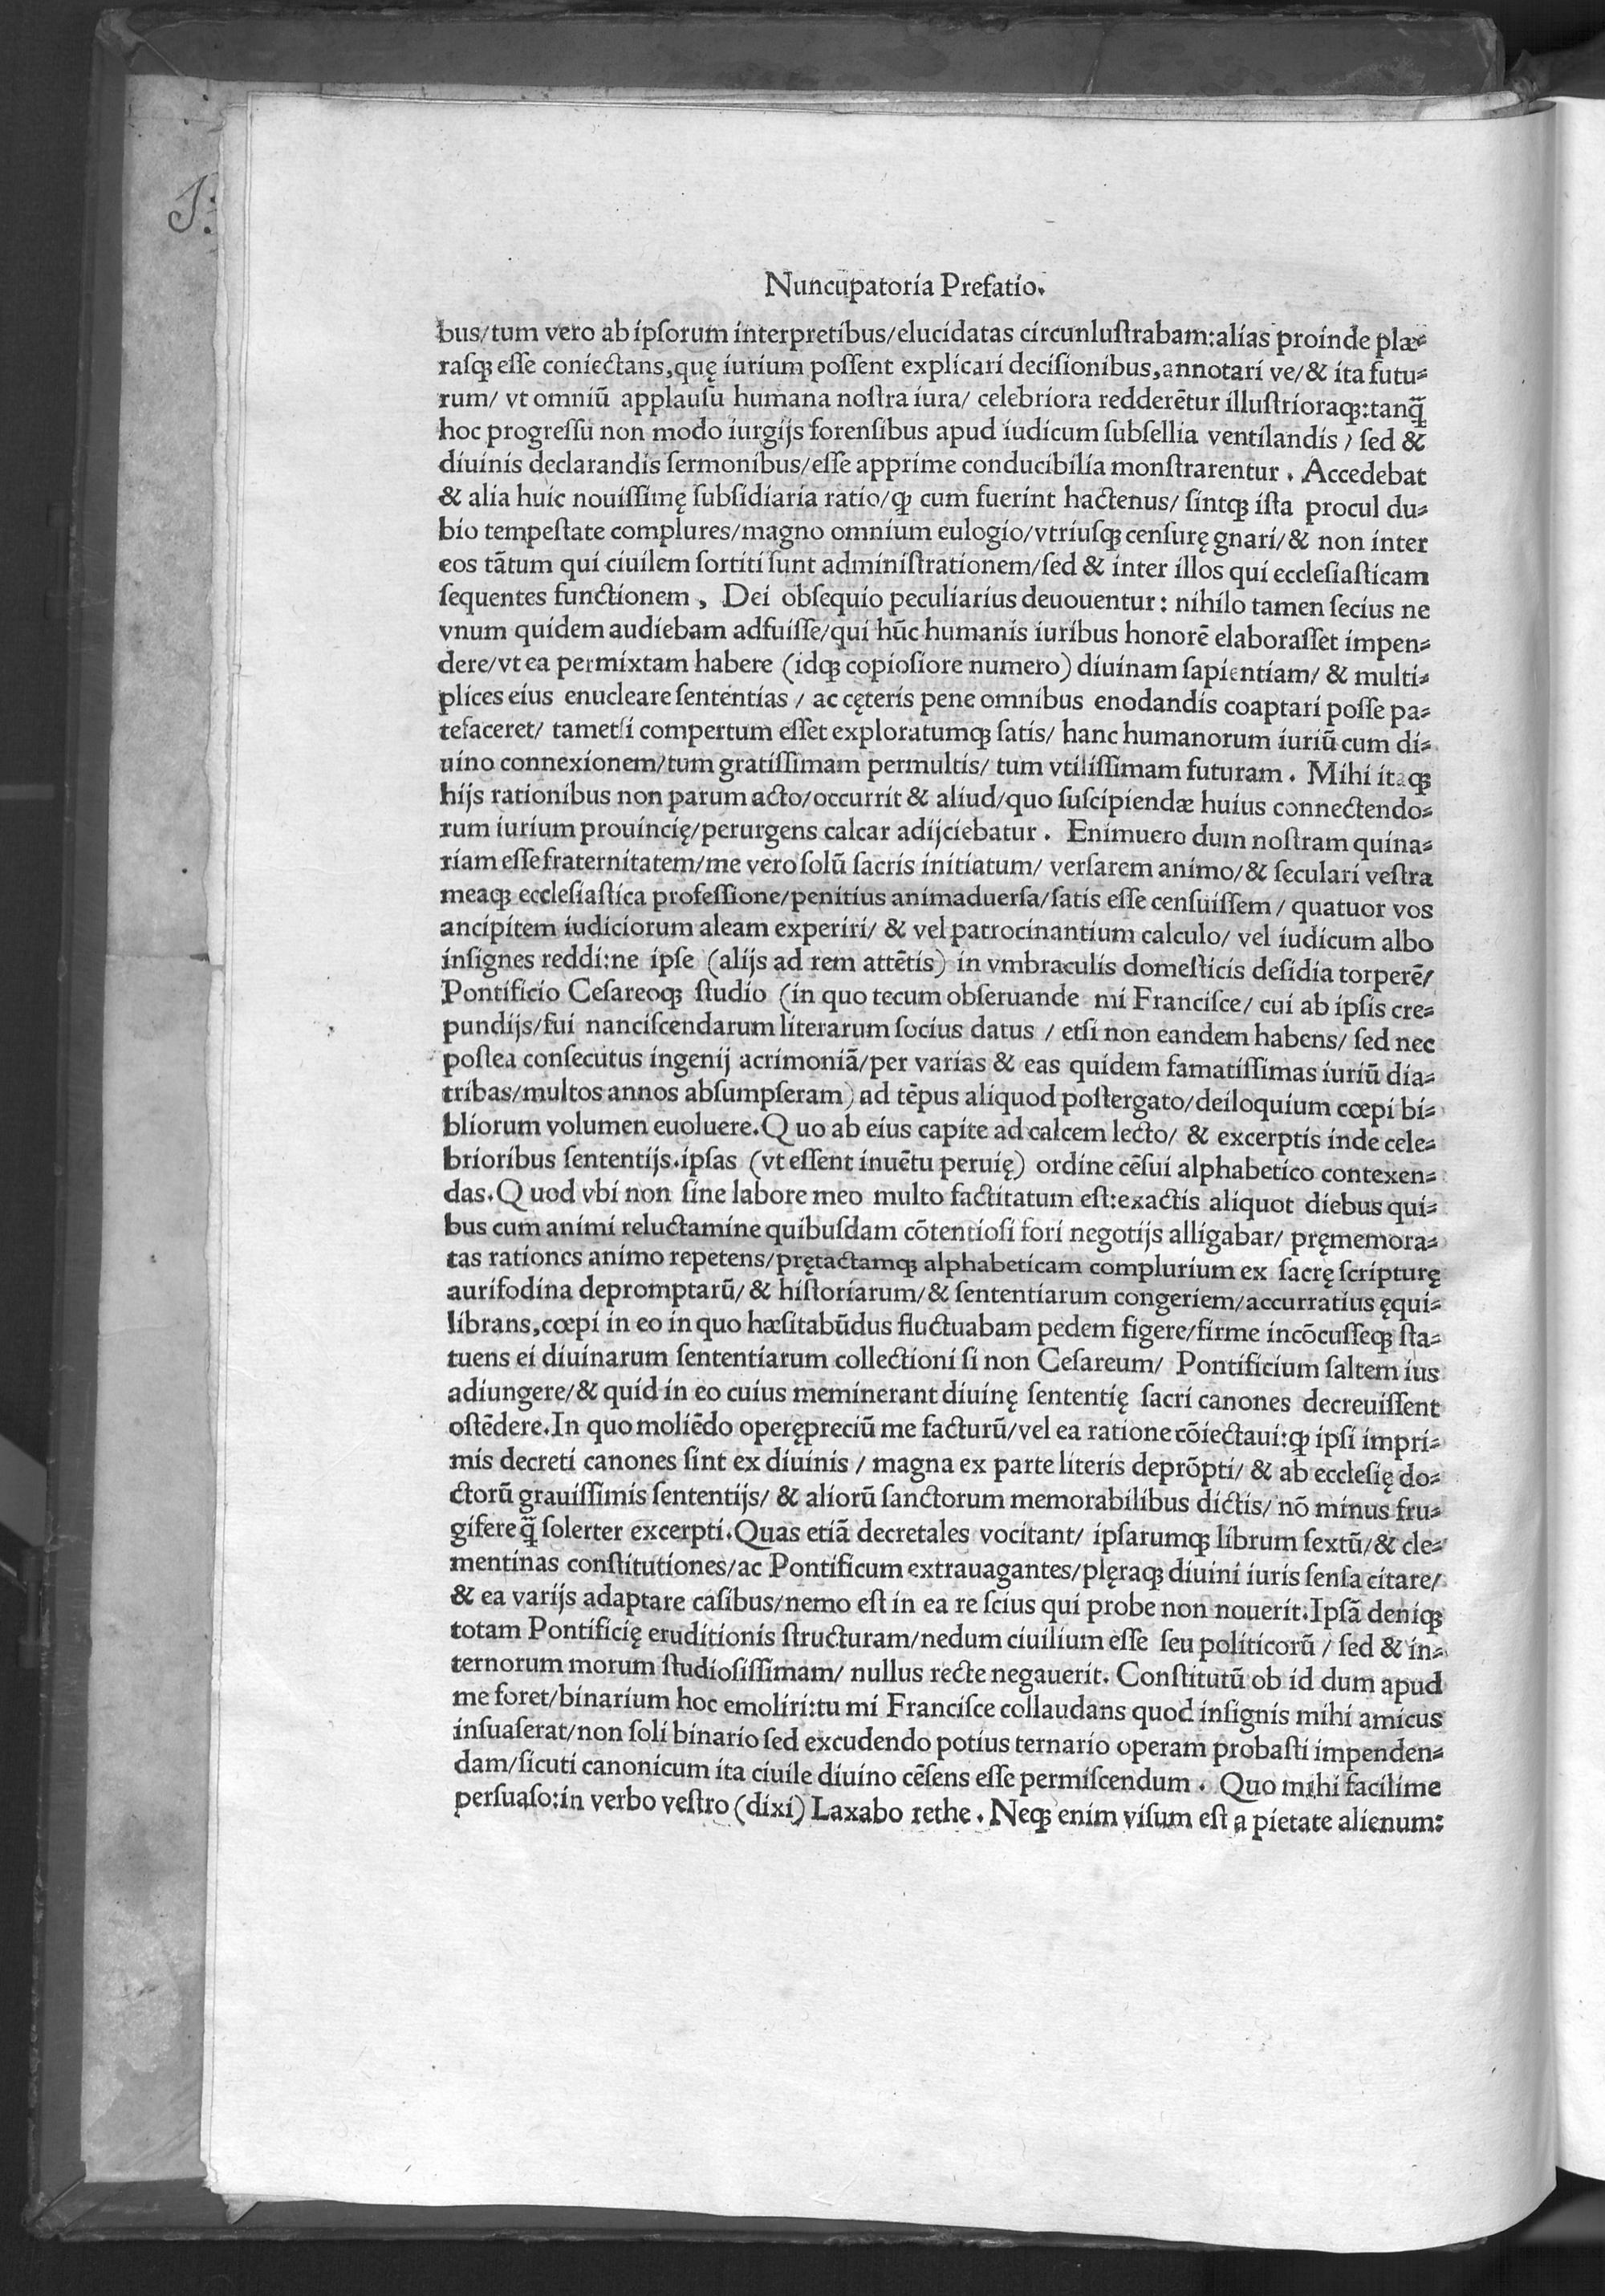 J:
Nuncupatoria Prefatio.
bus/tum vero ab ipſorum interpretibus/elucidatas circunluſtrabam:alias proinde plæ⸗
raſqꝫ eſſe coniectans,quę iurium poſſent explicari deciſionibus,annotari ve/& ita futu⸗
rum/ vt omniū applauſu humana noſtra iura/ celebriora redderētur illuſtrioraqꝫ:tanq̄
hoc progreſſu non modo iurgijs forenſibus apud iudicum ſubſellia ventilandis / ſed &
diuinis declarandis ſermonibus/eſſe apprime conducibilia monſtrarentur . Accedebat
& alia huic nouiſſimę ſubſidiaria ratio/qꝫ cum fuerint hactenus/ ſintqꝫ iſta procul du⸗
bio tempeſtate complures/magno omnium eulogio/vtriuſqꝫ cenſurę gnari/& non inter
eos tātum qui ciuilem ſortiti ſunt adminiſtrationem/ſed & inter illos qui eccleſiaſticam
ſequentes functionem , Dei obſequio peculiarius deuouentur: nihilo tamen ſecius ne
vnum quidem audiebam adfuiſſe/qui hūc humanis iuribus honorē elaboraſſet impen⸗
dere/vt ea permixtam habere (idqꝫ copioſiore numero) diuinam ſapientiam/ & multi⸗
plices eius enucleare ſententias / ac cęteris pene omnibus enodandis coaptari poſſe pa⸗
tefaceret/ tametſi compertum eſſet exploratumqꝫ ſatis/ hanc humanorum iuriū cum di⸗
uino connexionem/tum gratiſſimam permultis/ tum vtiliſſimam futuram . Mihi itaqꝫ
hijs rationibus non parum acto/occurrit & aliud/quo ſuſcipiendæ huius connectendo⸗
rum iurium prouincię/perurgens calcar adijciebatur . Enimuero dum noſtram quina⸗
riam eſſe fraternitatem/me vero ſolū ſacris initiatum/ verſarem animo/& ſeculari veſtra
meaqꝫ eccleſiaſtica profeſſione/penitius animaduerſa/ſatis eſſe cenſuiſſem/ quatuor vos
ancipitem iudiciorum aleam experiri/ & vel patrocinantium calculo/ vel iudicum albo
inſignes reddi:ne ipſe (alijs ad rem attētis) in vmbraculis domeſticis deſidia torperē/
Pontificio Ceſareoqꝫ ſtudio (in quo tecum obſeruande mi Franciſce/ cui ab ipſis cre⸗
pundijs/fui nanciſcendarum literarum ſocius datus / etſi non eandem habens/ ſed nec
poſtea conſecutus ingenij acrimoniā/per varias & eas quidem famatiſſimas iuriū dia⸗
tribas/multos annos abſumpſeram) ad tēpus aliquod poſtergato/deiloquium cœpi bi⸗
bliorum volumen euoluere.Quo ab eius capite ad calcem lecto/ & excerptis inde cele⸗
brioribus ſententijs.ipſas (vt eſſent inuētu peruię) ordine cēſui alphabetico contexen⸗
das.Quod vbi non ſine labore meo multo factitatum eſt:exactis aliquot diebus qui⸗
bus cum animi reluctamine quibuſdam cōtentioſi fori negotijs alligabar/ pręmemora⸗
tas rationes animo repetens/prętactamqꝫ alphabeticam complurium ex ſacrę ſcripturę
aurifodina depromptarū/ & hiſtoriarum/& ſententiarum congeriem/accurratius ęqui⸗
librans,cœpi in eo in quo hæſitabūdus fluctuabam pedem figere/firme incōcuſſeqꝫ ſta⸗
tuens ei diuinarum ſententiarum collectioni ſi non Ceſareum/ Pontificium ſaltem ius
adiungere/& quid in eo cuius meminerant diuinę ſententię ſacri canones decreuiſſent
oſtēdere.In quo moliēdo operępreciū me facturū/vel ea ratione cōiectaui:qꝫ ipſi impri⸗
mis decreti canones ſint ex diuinis / magna ex parte literis deprōpti/ & ab eccleſię do⸗
ctorū grauiſſimis ſententijs/ & aliorū ſanctorum memorabilibus dictis/ nō minus fru⸗
gifere q̄ ſolerter excerpti.Quas etiā decretales vocitant/ ipſarumqꝫ librum ſextū/& cle⸗
mentinas conſtitutiones/ac Pontificum extrauagantes/plęraqꝫ diuini iuris ſenſa citare/
& ea varijs adaptare caſibus/nemo eſt in ea re ſcius qui probe non nouerit.Ipſā deniqꝫ
totam Pontificię eruditionis ſtructuram/nedum ciuilium eſſe ſeu politicorū / ſed & in⸗
ternorum morum ſtudioſiſſimam/ nullus recte negauerit. Conſtitutū ob id dum apud
me foret/binarium hoc emoliri:tu mi Franciſce collaudans quod inſignis mihi amicus
inſuaſerat/non ſoli binario ſed excudendo potius ternario operam probaſti impenden⸗
dam/ſicuti canonicum ita ciuile diuino cēſens eſſe permiſcendum . Quo mihi facilime
perſuaſo:in verbo veſtro (dixi) Laxabo rethe . Neqꝫ enim viſum eſt a pietate alienum: